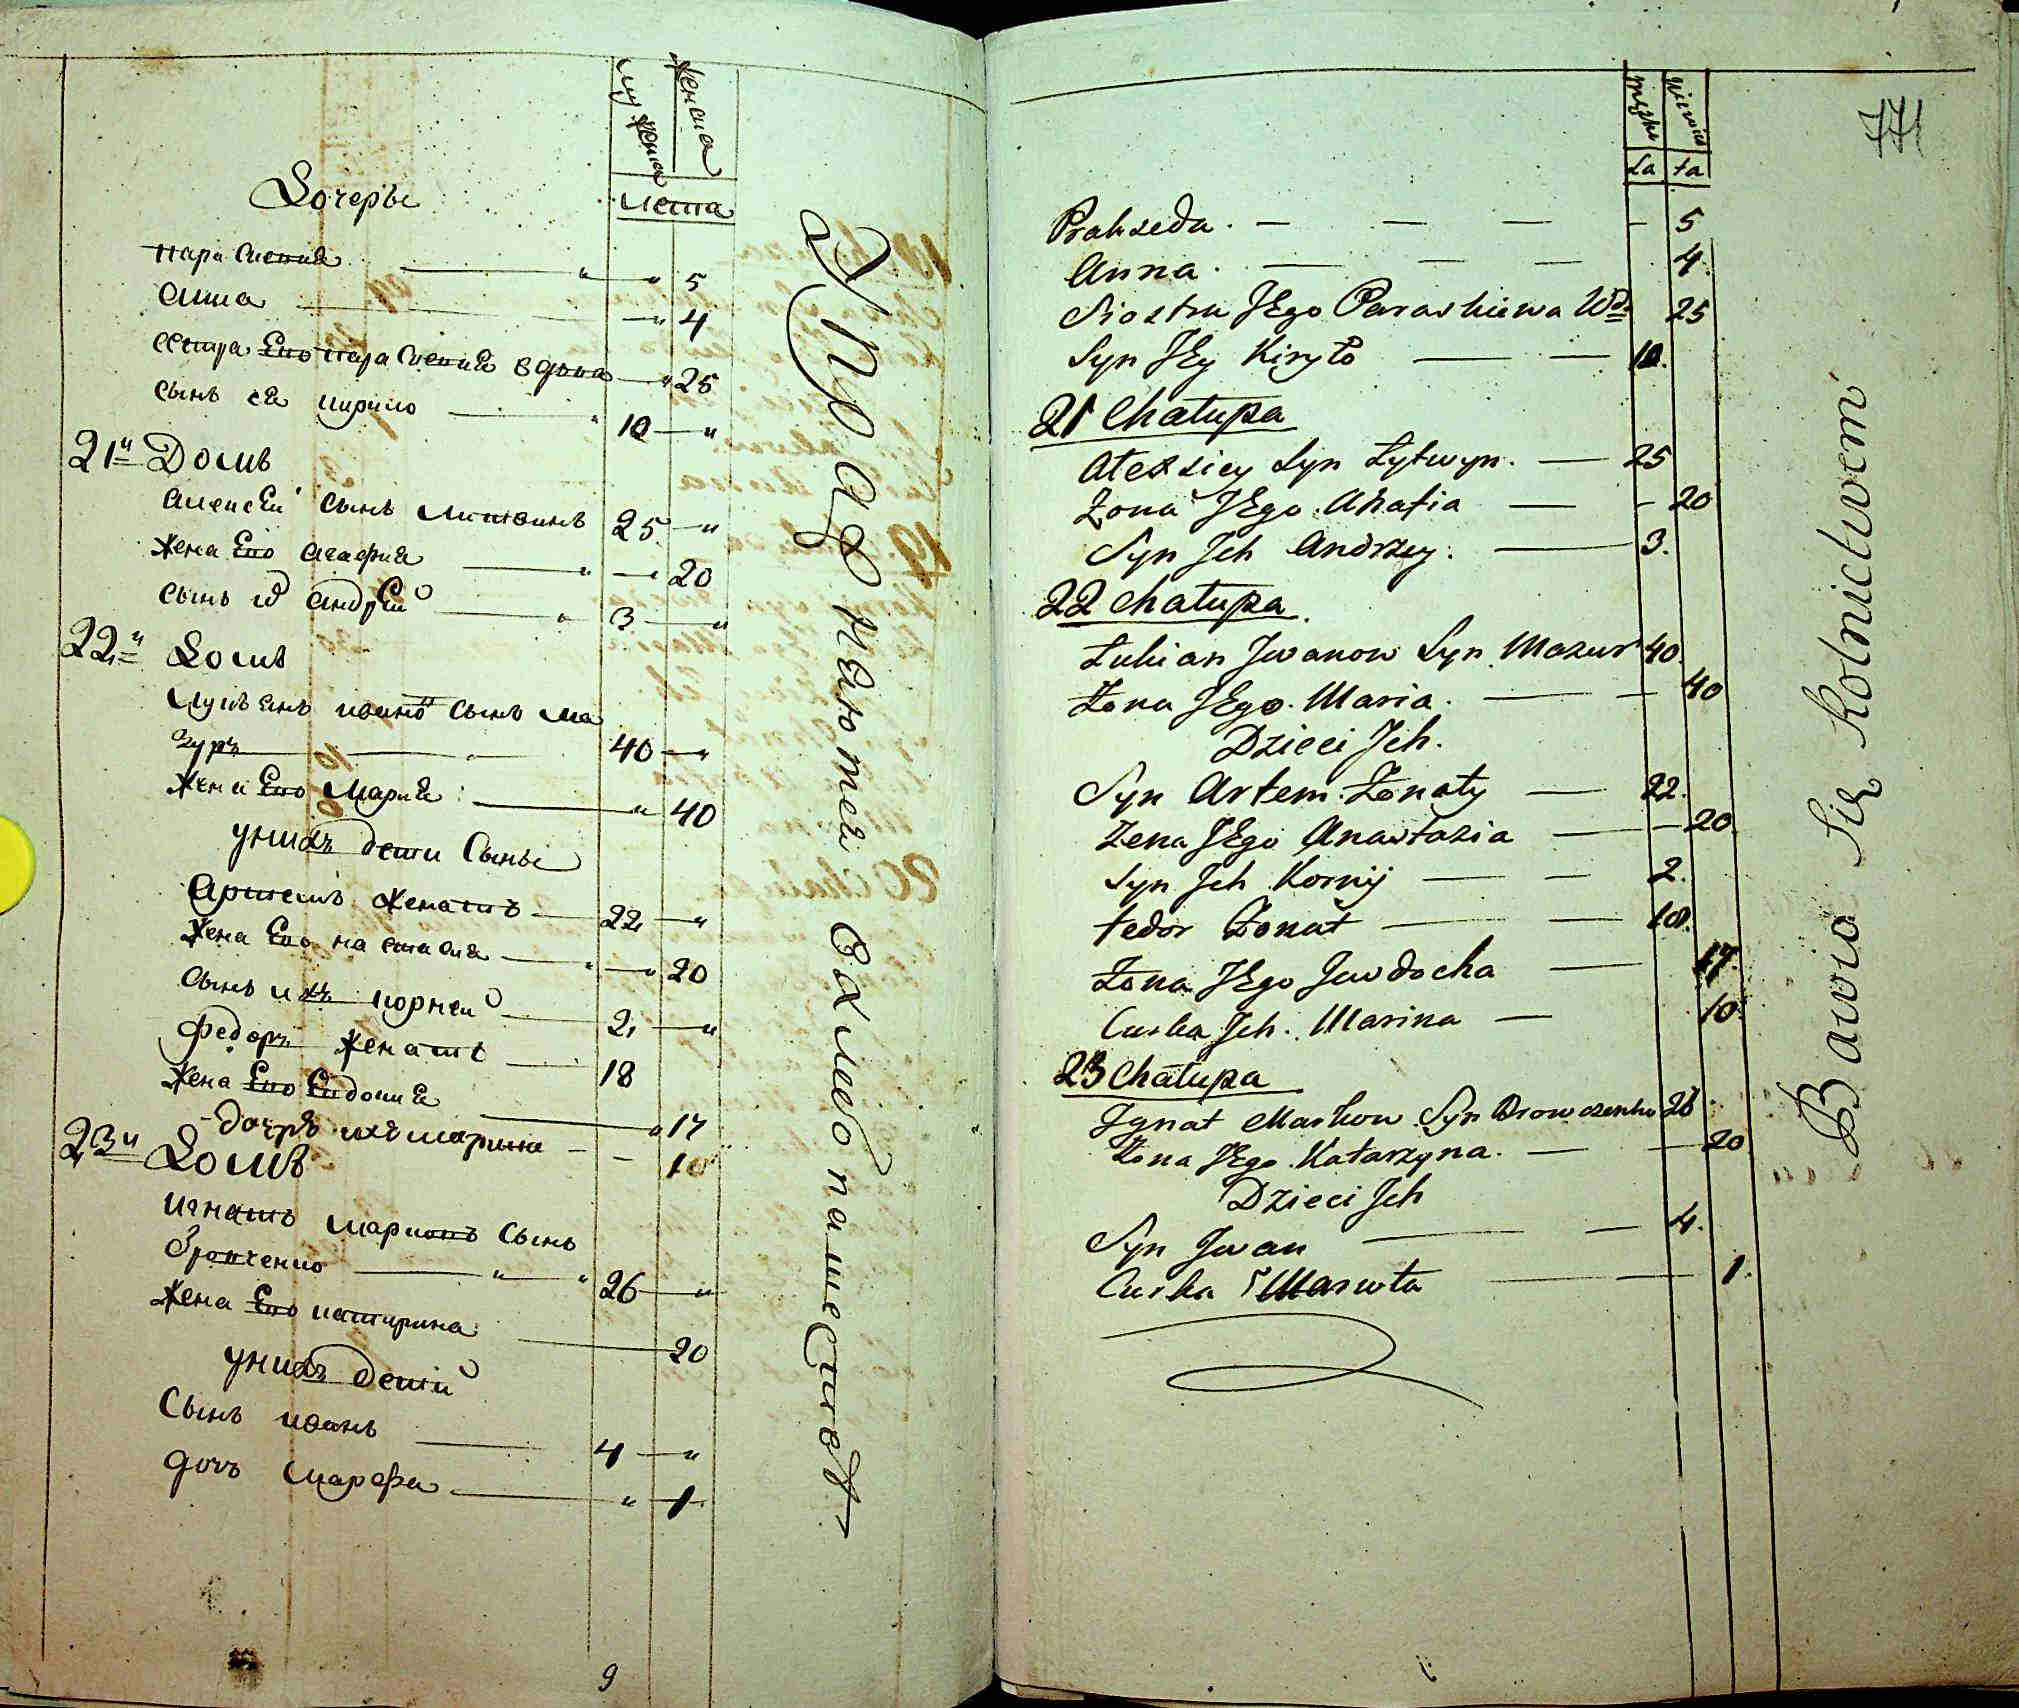 мужеска
женска
лета
Дочерье
параскевия — " — " 5
Анна — " 4
сестра Его параскевия вдова — " 25
сынъ ея кирило — " 10 — "
21й Домъ
Алексей сынъ литвинъ 25 — "
жена Его агафия — " — 20
сынъ их андрей — " 3 — "
22й Домъ
лукъянъ ивановъ сынъ ма
зуръ — 40 — "
жена Его мария — " 40
у них дети сынъ
Артемъ женатъ — 22 — "
жена Его настасия — " — " 20
сынъ ихъ корней — 2 — "
федоръ женатъ — 18
жена Его Евдокия — " 17
дочь ихъ марина — — 10
23й Домъ
игнатъ марковъ сынъ
дровченко — " — " 26 — "
жена Его катирина — 20
у нихъ детий
Сынъ иванъ — 4 — "
дочь марфа — " 1
9
Упражняются в хлебопашестве
771
męzka
niewia
La ta
Prakseda. — — — — 5
Anna. — — — 4.
Siostra JEgo Paraskiewa Wd. 25
Syn JEy Kiryło — — 10.
21 Chałupa
Alexiey Syn Łytwyn. — 25
Zona JEgo Ahafia — — 20
Syn Jch Andrzey. — 3.
22 Chałupa.
Łukian Jwanow Syn Mazur 40.
Zona JEgo Maria. — — 40
Dzieci Jch.
Syn Artem Żonaty — 22.
Zena JEgo Anastazia — — 20.
Syn Jch Kornij — — 2.
Fedor Żonat — — 18.
Zona JEgo Jewdocha — 17.
Curka Jch. Marina — 10.
23 Chałupa
Jgnat Markow Syn Drowczenko 26
Zona JEgo Katarzyna. — — 20
Dzieci Jch
Syn Jwan — — 4.
Curka Marwta — — 1.
Bawio Się Rolnictwem